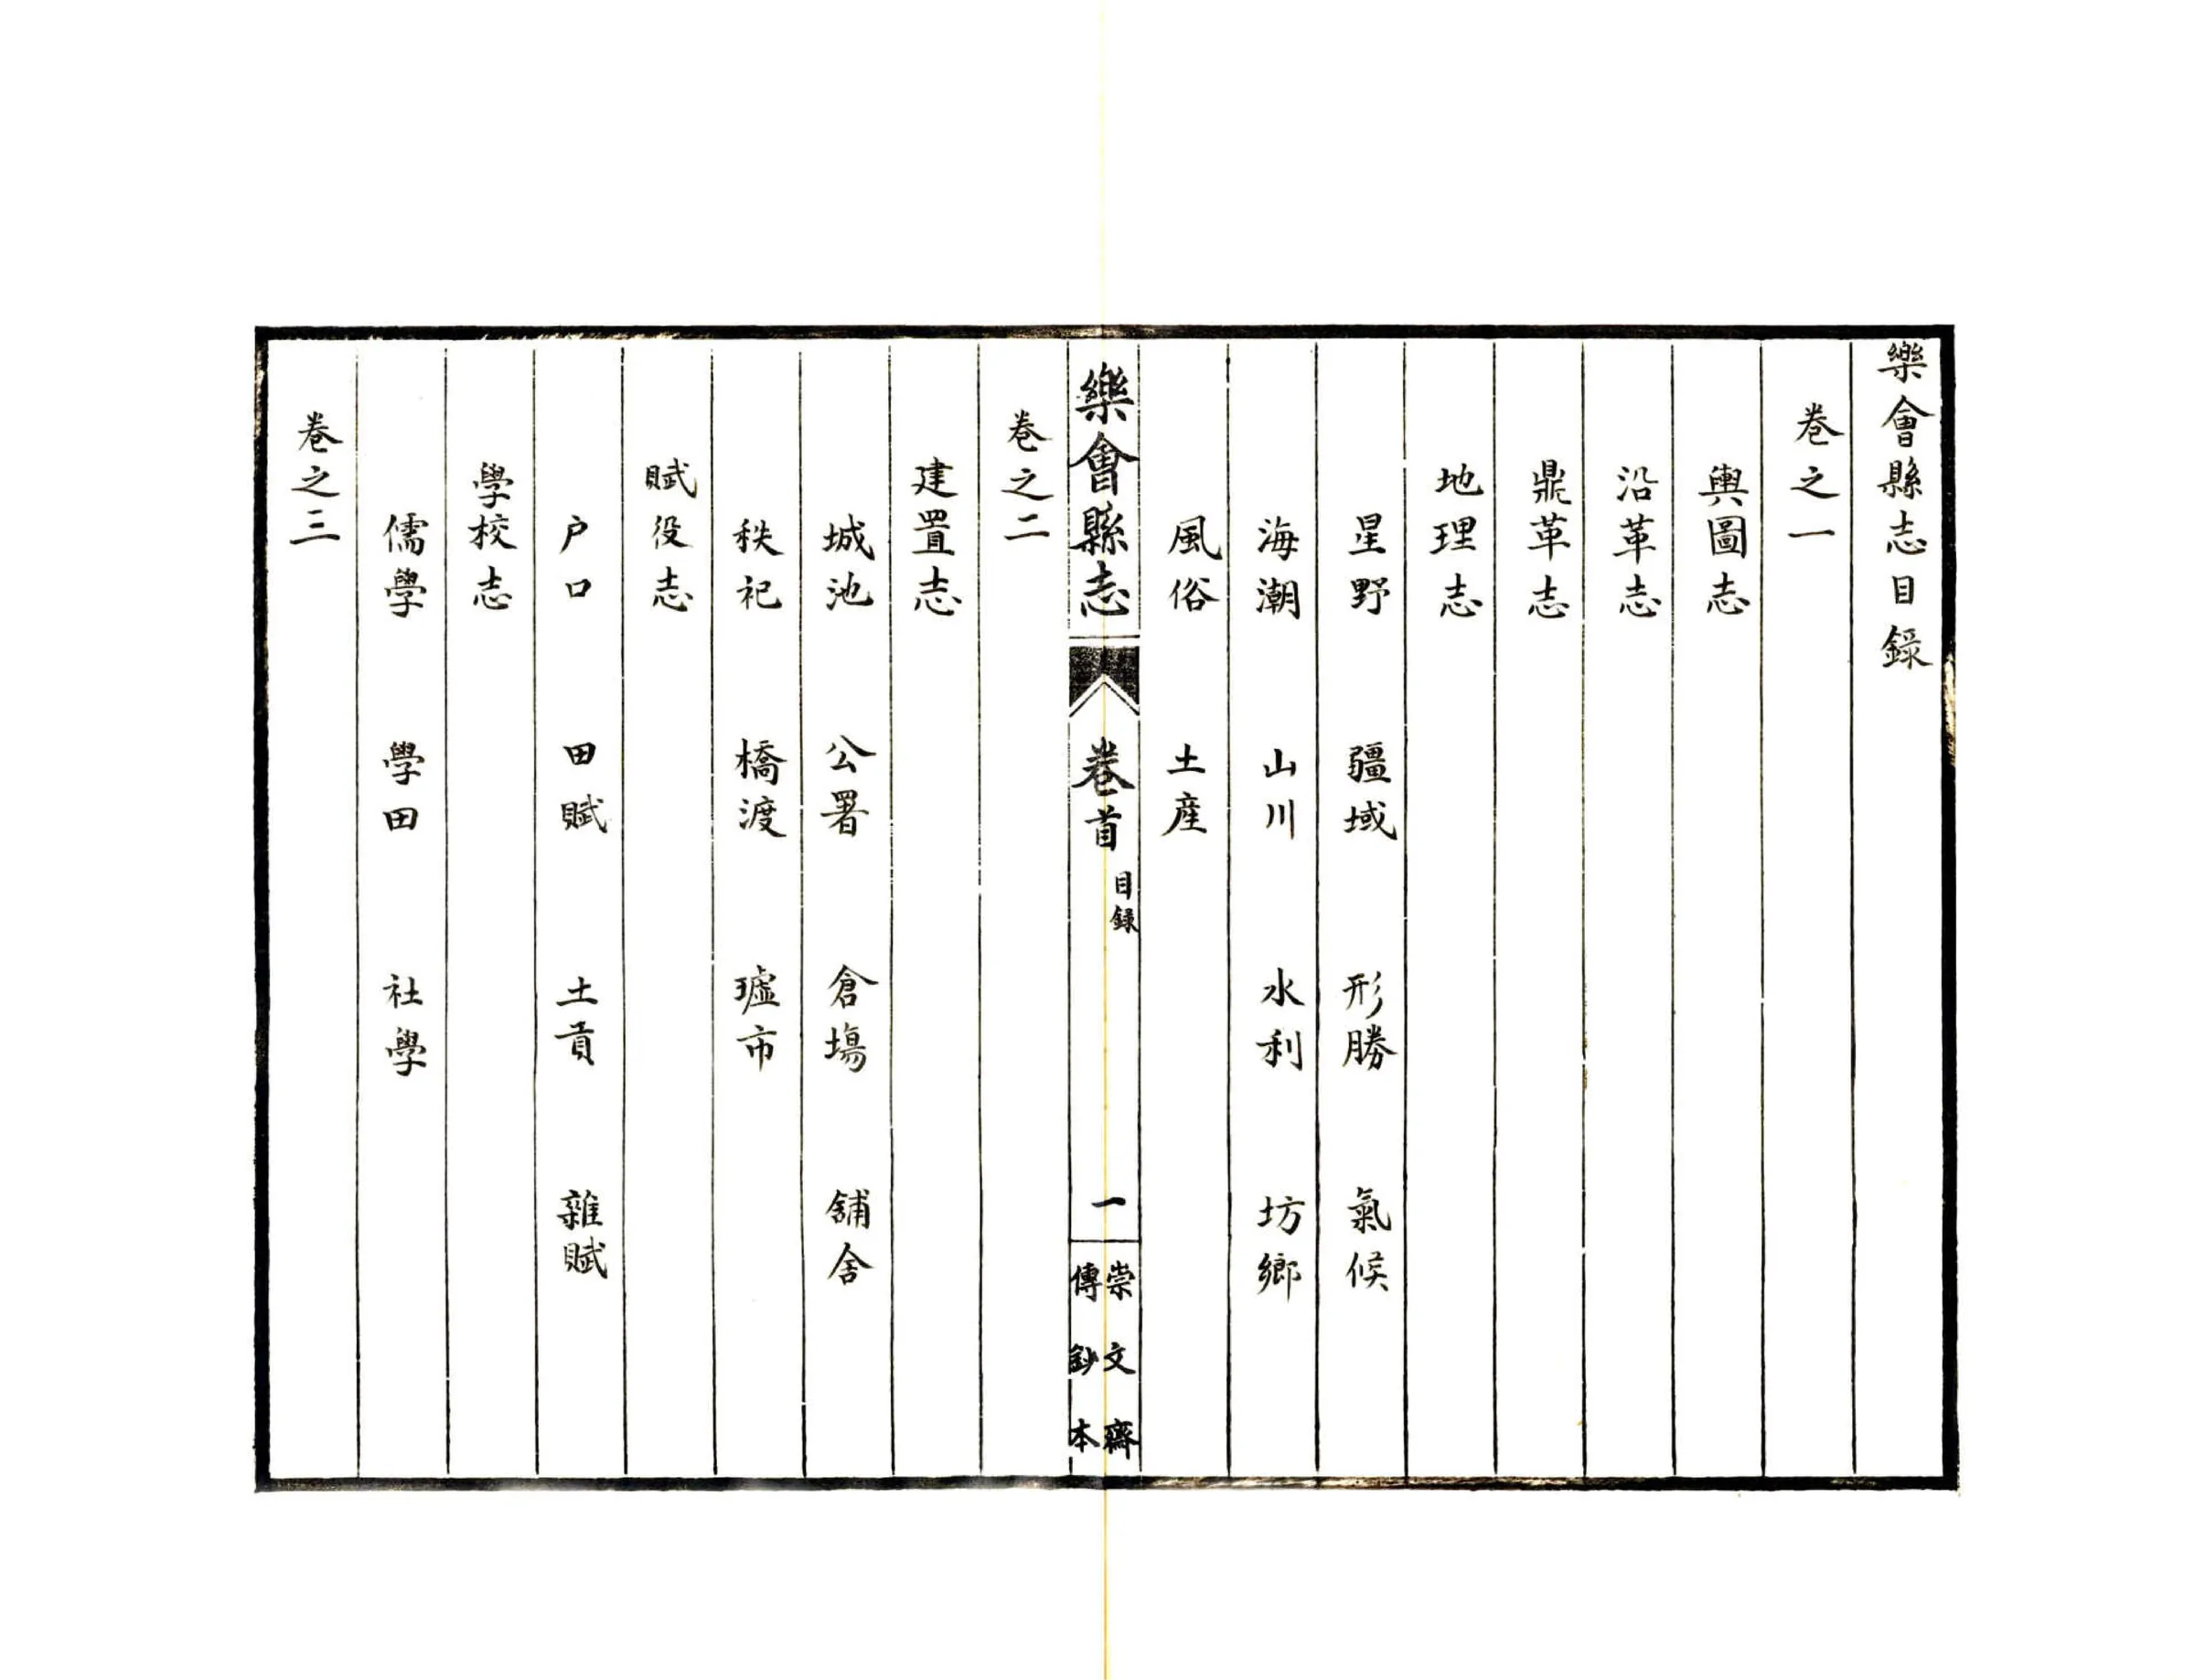 樂會縣志目錄
卷之一
輿圖志
沿革志
鼎革志
地理志
星野　疆域　形勝　氣候
海潮　山川　水利　坊鄉
風俗　土産
樂會縣志　卷首　目錄　一　崇文齋傳鈔本
卷之二
建置志
城池　公署　倉塲　舖舍
秩祀　橋渡　墟市
賦役志
户口　田賦　土貢　雜賦
學校志
儒學　學田　社學
卷之三